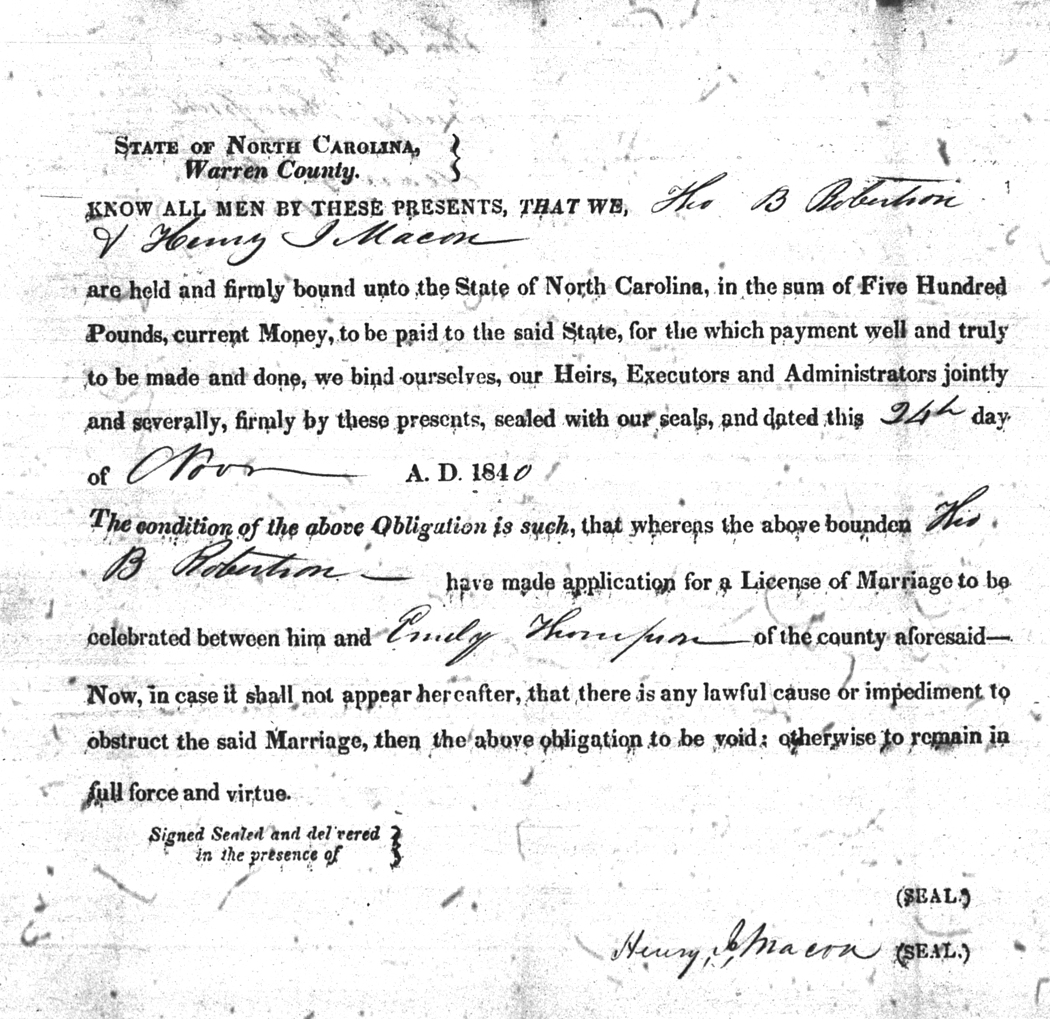 STATE OF NORTH CAROLINA,
Warren County.
KNOW ALL MEN BY THESE PRESENTS, THAT WE, Tho B Robertson
& Henry J Macon
are held and firmly bound unto the State of North Carolina, in the sum of Five Hundred
Pounds, current Money, to be paid to the said State, for the which payment well and truly
to be made and done, we bind ourselves, our Heirs, Executors and Administrators jointly
and severally, firmly by these presents, sealed with our seals, and dated this 24th day
of Novr A. D. 1840
The condition of the above Obligation is such, that whereas the above bounden Tho
B Robertson have made application for a License of Marriage to be
celebrated between him and Emily Thompson of the county aforesaid—
Now, in case it shall not appear hereafter, that there is any lawful cause or impediment to
obstruct the said Marriage, then the above obligation to be void; otherwise to remain in
full force and virtue.
Signed Sealed and del'vered
in the presence of
(SEAL.)
Henry J. Macon (SEAL.)